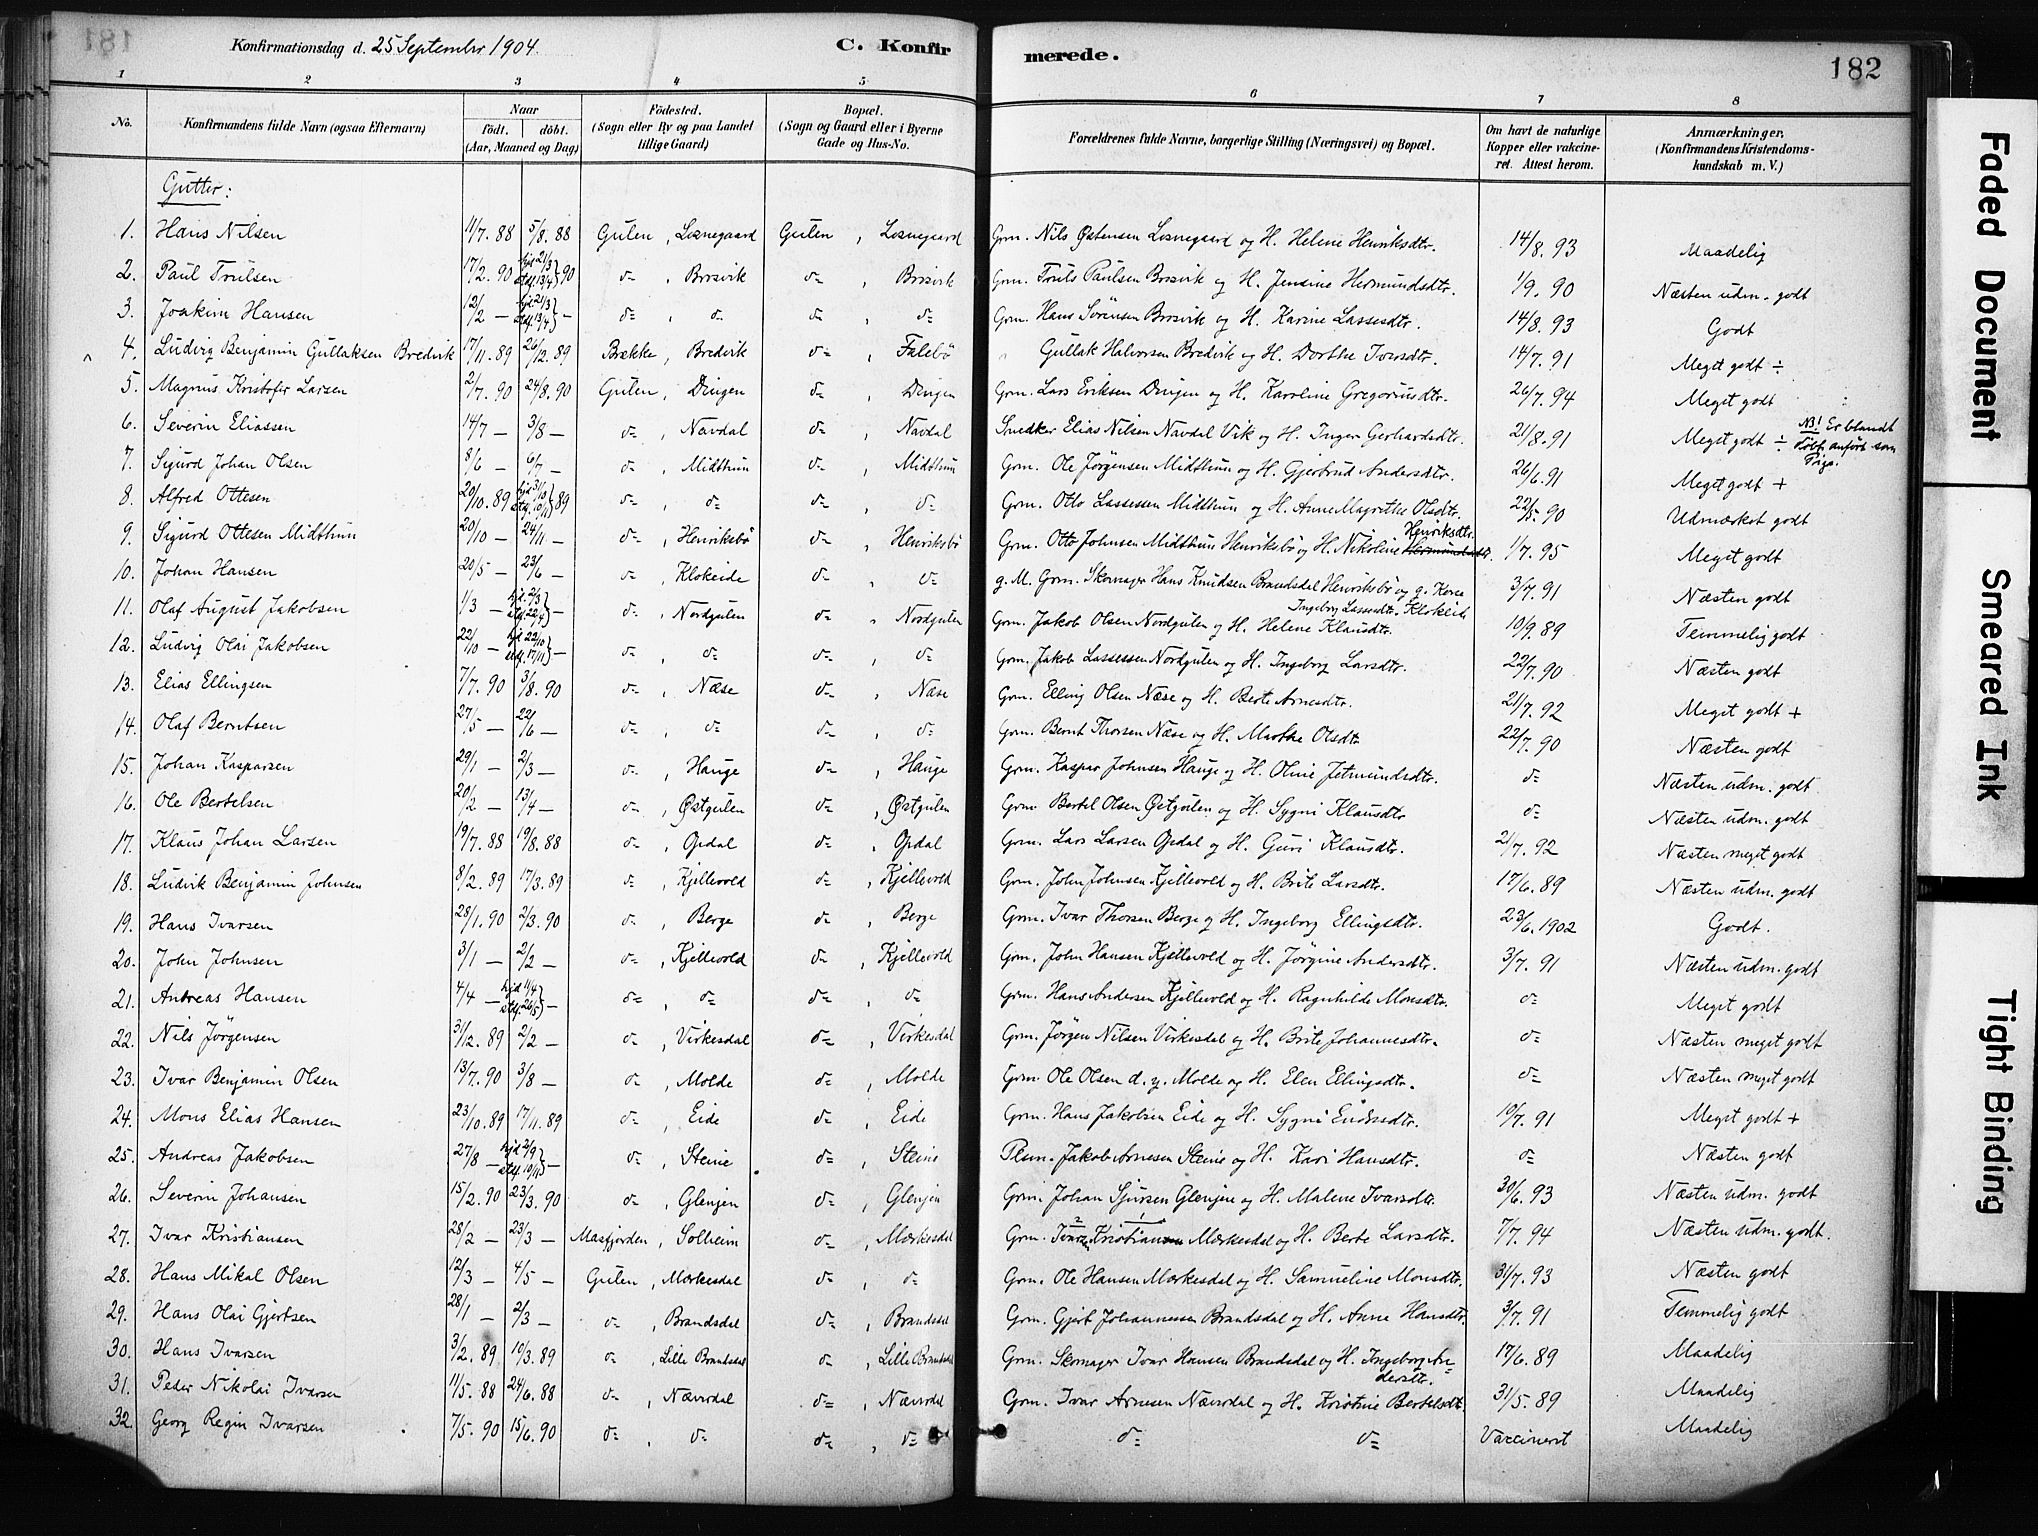 Konfirmationsdag d. 25 September 1904. C. Konfirmerede. 182
1 2 3 4 5 6 7 8
No. Konfirmandens fulde Navn (ogsaa Efternavn) Naar födt. döbt. (Aar, Maaned og Dag) Födested. (Sogn eller By og paa Landet tillige Gaard) Bopæl. (Sogn og Gaard eller i Byerne Gade og Hus-No. Forældrenes fulde Navne, borgerlige Stilling (Næringsvei) og Bopæl. Om havt de naturlige Kopper eller vakcineret. Attest herom. Anmærkninger. (Konfirmandens Kristendomskundskab m. V.)
Gutter:
1. Hans Nilsen 11/7. 88 5/8. 88 Gulen, Losnegaard Gulen, Losnegaard Grm. Nils Østensen Losnegaard og H. Helene Henriksdtr. 14/8. 93 Maadelig
2. Paul Trulsen 17/2. 90 hjd 21/3 stdf. 13/4 } 90 d=, Brosvik d=, Brosvik Grm. Truls Paulsen Brosvik og H. Jensine Hermundsdtr. 1/9. 90 Næsten udm. godt
3. Joakim Hansen 12/2 — hjd 21/3 stdf. 13/4 } — d=, d= d=, d= Grm. Hans Sörensen Brosvik og H. Karine Lassesdtr. 14/8. 93 Godt
4. Ludvig Benjamin Gullaksen Bredvik 17/11. 89 26/12. 89 Brekke, Bredvik d=, Falebö Gullak Halvorsen Bredvik og H. Dorthe Iversdtr. 14/7. 91 Meget godt ÷
5. Magnus Kristofer Larsen 2/7. 90 24/8. 90 Gulen, Dingen d=, Dingen Grm. Lars Eriksen Dingen og H. Karoline Gregoriusdtr. 26/7. 94 Meget godt
6. Severin Eliassen 14/7 — 3/8 — d=, Navdal d=, Navdal Snedker Elias Nilsen Navdal Vik og H. Inger Gerhardsdtr. 21/8. 91 Meget godt ÷ NB! Er blandt döbt. anfört som Pige.
7. Sigurd Johan Olsen 8/6 — 6/7 — d=, Midthun d=, Midthun Grm. Ole Jörgensen Midthun og H. Gjertrud Andersdtr. 26/6. 91 Meget godt +
8. Alfred Ottesen 20/10. 89 hjd 31/10 stdf. 10/11 } 89 d=, d= d=, d= Grm. Otto Lassessen Midthun og H. Anne Magrethe Olsdtr. 22/5. 90 Udmærket godt
9. Sigurd Ottesen Midthun 20/10 — 24/11 — d=, Henriksbö d=, Henriksbö Grm. Otto Johnsen Midthun Henriksbö og H. Nikoline Henriksdtr. 1/7. 95 Meget godt
10. Johan Hansen 20/5 — 23/6 — d=, Klokeide d=, d= g. M. Grm. Skomager Hans Knudsen Brandsdal Henriksbö og g. Kone Ingeborg Lassesdtr. Klokeide 3/7. 91 Næsten godt
11. Olaf August Jakobsen 1/3 — hjd. 2/3 stdf. 22/4 } — d=, Nordgulen d=, Nordgulen Grm. Jakob Olsen Nordgulen og H. Helene Klausdtr. 10/9. 89 Temmelig godt
12. Ludvig Olai Jakobsen 22/10 — hjd 22/10 stdf. 17/11 } — d=, d= d=, d= Grm. Jakob Lassessen Nordgulen og H. Ingeborg Larsdtr. 22/7. 90 Næsten godt
13. Elias Ellingsen 7/7. 90 3/8. 90 d=, Næse d=, Næse Grm. Elling Olsen Næse og H. Berte Arnesdtr. 21/7. 92 Meget godt +
14. Olaf Berntsen 27/5 — 22/6 — d=, d= d=, d= Grm. Bernt Thorsen Næse og H. Marthe Olsdtr. 22/7. 90 Næsten godt
15. Johan Kasparsen 29/1 — 2/3 — d=, Hauge d=, Hauge Grm. Kaspar Johnsen Hauge og H. Oline Jetmundsdtr. d= Næsten udm. godt
16. Ole Bertelsen 20/2 — 13/4 — d=, Østgulen d=, Østgulen Grm. Bertel Olsen Østgulen og H. Sygni Klausdtr d= Næsten udm. godt
17. Klaus Johan Larsen 19/7. 88 19/8. 88 d=, Opdal d=, Opdal Grm. Lars Larsen Opdal og H. Guri Klausdtr. 21/7. 92 Næsten meget godt
18. Ludvik Benjamin Johnsen 8/2. 89 17/3. 89 d=, Kjellevold d=, Kjellevold Grm. John Johnsen Kjellevold og H. Brite Larsdtr. 17/6. 89 Næsten udm. godt
19. Hans Ivarsen 28/1. 90 2/3. 90 d=, Berge d=, Berge Grm. Ivar Thorsen Berge og H. Ingeborg Ellingsdtr. 23/6. 1902 Godt.
20. John Johnsen 3/1 — 2/2 — d=, Kjellevold d=, Kjellevold Grm. John Hansen Kjellevold og H. Jörgine Andersdtr. 3/7. 91 Næsten udm. godt
21. Andreas Hansen 4/4 — hjd 11/4 stdf. 26/5 } — d=, d= d=, d= Grm. Hans Andersen Kjellevold og H. Ragnhilde Monsdtr. d= Meget godt
22. Nils Jörgensen 31/12. 89 2/2 — d=, Virkesdal d=, Virkesdal Grm. Jörgen Nilsen Virkesdal og H. Brite Johannesdtr. d= Næsten meget godt
23. Ivar Benjamin Olsen 13/7. 90 3/8 — d=, Molde d=, Molde Grm. Ole Olsen d. y. Molde og H. Elen Ellingsdtr. d= Næsten meget godt
24. Mons Elias Hansen 23/10. 89 17/11. 89 d=, Eide d=, Eide Grm. Hans Jakobsen Eide og H. Sygni Endresdtr. 10/7. 91 Meget godt +
25. Andreas Jakobsen 27/8 — hjd 2/9 stdf. 10/11 } — d=, Steine d=, Steine Plsm. Jakob Arnesen Steine og H. Kari Hansdtr. d= Næsten godt
26. Severin Johansen 15/2. 90 23/3. 90 d=, Glenjen d=, Glenjen Grm. Johan Sjursen Glenjene og H. Malene Ivarsdtr. 30/6. 93 Næsten udm. godt
27. Ivar Kristiansen 28/2 — 23/3 — Masfjorden, Solheim d=, Mærkesdal Grm. Ivarsen Kristian Mærkesdal og H. Berte Larsdtr. 7/7. 94 Næsten udm. godt.
28. Hans Mikal Olsen 12/3 — 4/5 — Gulen, Mærkesdal d=, d= Grm. Ole Hansen Mærkesdal og H. Samueline Monsdtr. 31/7. 93 Næsten godt
29. Hans Olai Gjertsen 28/1 — 2/3 — d=, Brandsdal d=, Brandsdal Grm. Gjert Johannessen Brandsdal og H. Anne Hansdtr. 3/7. 91 Temmelig godt
30. Hans Ivarsen 3/2. 89 10/3. 89 d=, Lille Brandsdal d=, Lille Brandsdal Grm. Skomager Ivar Hansen Brandsdal og H. Ingeborg Andersdtr. 17/6. 89 Maadelig
31. Peder Nikolai Ivarsen 11/5. 88 24/6. 88 d=, Nævrdal d=, Nævrdal Grm. Ivar Arnesen Nævrdal og H. Kristine Bertelsdtr. 31/5. 89 Maadelig
32. Georg Regin Ivarsen 7/5. 90 15/6. 90 d=, d= d=, d= d= d= Vaccineret Maadelig
Faded Document
Smeared Ink
Tight Binding